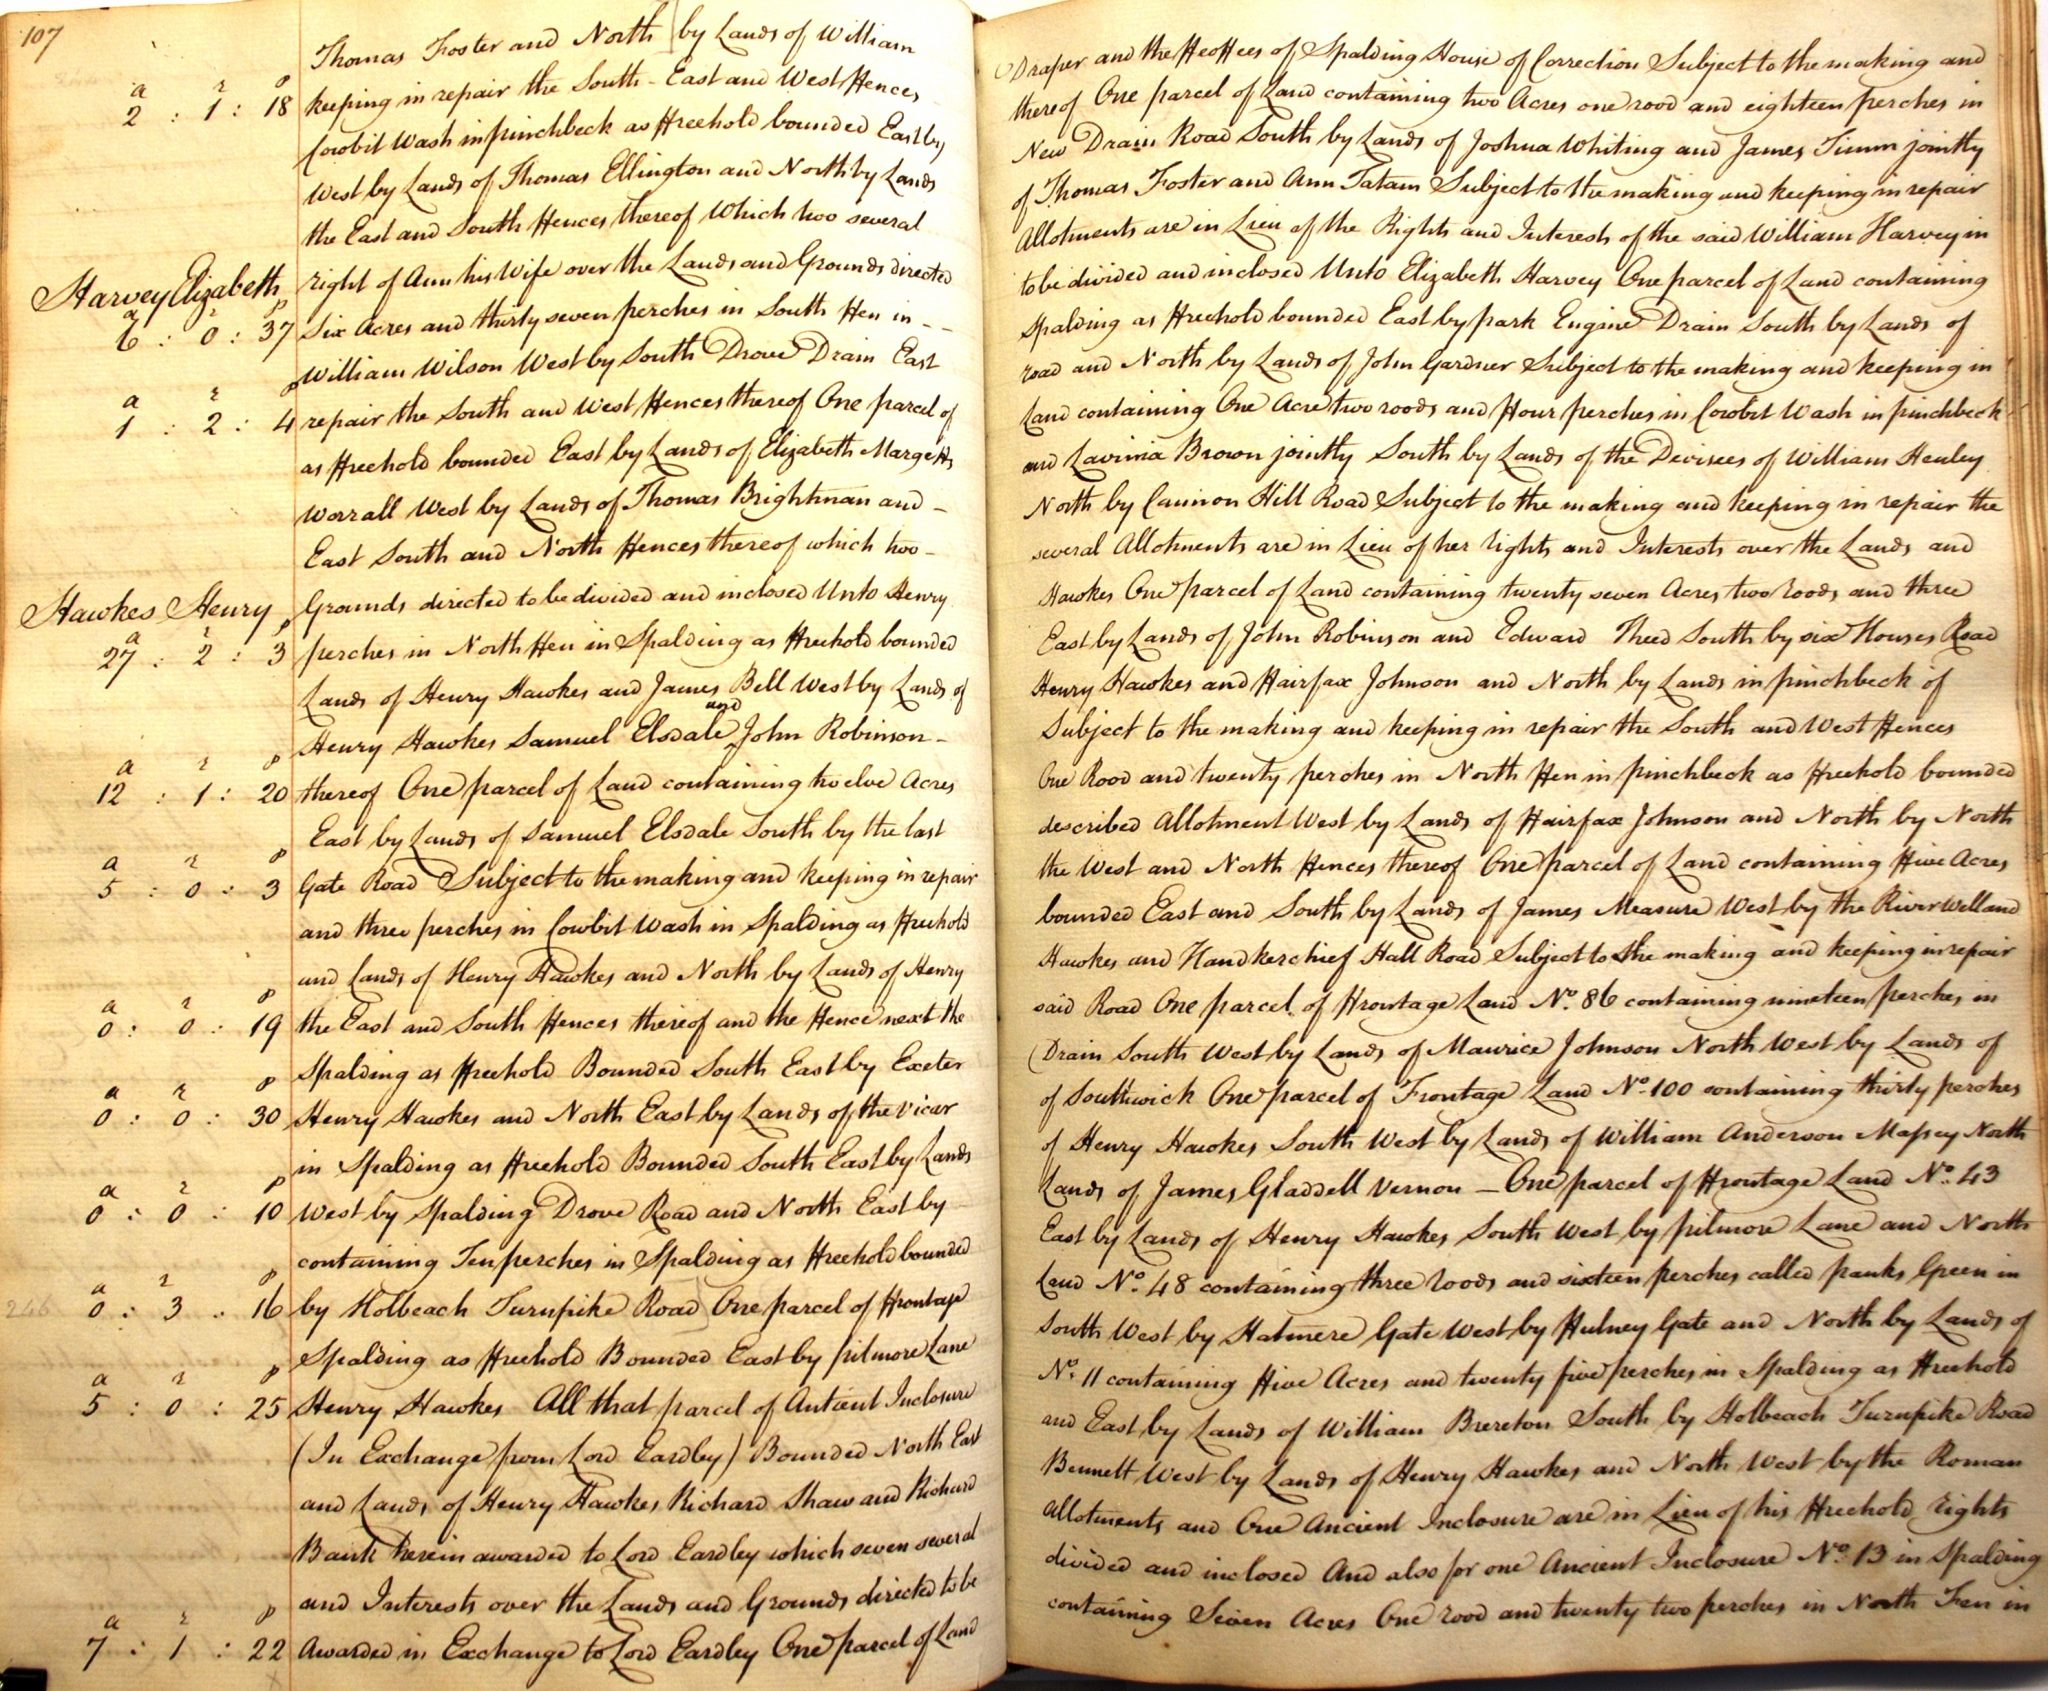 107
Thomas Foster and North by Lands of William Draper and the Feoffees of Spalding House of Correction Subject to the making and
a r p
2 : 1 : 18 keeping in repair the South - East and West Fences thereof One parcel of Land containing two Acres one rood and eighteen perches in
Cowbit Wash in pinchbeck as Freehold bounded East by New Drain Road South by Lands of Joshua Whiting and James Timm jointly
West by Lands of Thomas Ellington and North by Lands of Thomas Foster and Ann Tatam Subject to the making and keeping in repair
the East and South Fences thereof Which two several Allotments are in Lieu of the Rights and Interests of the said William Harvey in
Harvey Elizabeth right of Ann his Wife over the Lands and Grounds directed to be divided and inclosed Unto Elizabeth Harvey One parcel of Land containing
a r p
6 : 0 : 37 Six Acres and thirty seven perches in South Fen in - - Spalding as Freehold bounded East by park Engine Drain South by Lands of
William Wilson West by South Drove Drain East road and North by Lands of John Gardner Subject to the making and keeping in
a r p
1 : 2 : 4 repair the South and West Fences thereof One parcel of Land containing One Acre two roods and Four perches in Cowbit Wash in pinchbeck
as Freehold bounded East by Lands of Elizabeth Margetts and Lavinia Brown jointly South by Lands of the Devisees of William Henley
Worrall West by Lands of Thomas Brightman and - North by Cannon Hill Road Subject to the making and keeping in repair the
East South and North Fences thereof which two - several Allotments are in Lieu of her rights and Interests over the Lands and
Hawkes Henry Grounds directed to be divided and inclosed Unto Henry Hawkes One parcel of Land containing twenty seven Acres two roods and three
a r p
27 : 2 : 3 perches in North Fen in Spalding as Freehold bounded East by Lands of John Robinson and Edward Theed South by six Houses Road
Lands of Henry Hawkes and James Bell West by Lands of Henry Hawkes and Fairfax Johnson and North by Lands in pinchbeck of
Henry Hawkes Samuel Elsdale and John Robinson - Subject to the making and keeping in repair the South and West Fences
a r p
12 : 1 : 20 thereof One parcel of Land containing twelve Acres One Rood and twenty perches in North Fen in pinchbeck as Freehold bounded
East by Lands of Samuel Elsdale South by the last described Allotment West by Lands of Fairfax Johnson and North by North
a r p
5 : 0 : 3 Gate Road Subject to the making and keeping in repair the West and North Fences thereof One parcel of Land containing Five Acres
and three perches in Cowbit Wash in Spalding as Freehold bounded East and South by Lands of James Measure West by the River Welland
and Lands of Henry Hawkes and North by Lands of Henry Hawkes and Handkerchief Hall Road Subject to the making and keeping in repair
a r p
0 : 0 : 19 the East and South Fences thereof and the Fence next the said Road One parcel of Frontage Land No. 86 containing nineteen perches in
Spalding as Freehold Bounded South East by Exeter Drain South West by Lands of Maurice Johnson North West by Lands of
a r p
0 : 0 : 30 Henry Hawkes and North East by Lands of the Vicar of Southwick One parcel of Frontage Land No. 100 containing thirty perches
in Spalding as Freehold Bounded South East by Lands of Henry Hawkes South West by Lands of William Anderson Massey North
a r p
0 : 0 : 10 West by Spalding Drove Road and North East by Lands of James Gladdell Vernon — One parcel of Frontage Land No. 43
containing Ten perches in Spalding as Freehold bounded East by Lands of Henry Hawkes South West by pilmore Lane and North
a r p
246 0 : 3 : 16 by Holbeach Turnpike Road One parcel of Frontage Land No. 48 containing three roods and sixteen perches called panks Green in
Spalding as Freehold Bounded East by pilmore Lane South West by Halmere Gate West by Fulney Gate and North by Lands of
a r p
5 : 0 : 25 Henry Hawkes All that parcel of Antient Inclosure No. 11 containing Five Acres and twenty five perches in Spalding as Freehold
(In Exchange from Lord Eardley) Bounded North East and East by Lands of William Brereton South by Holbeach Turnpike Road
and Lands of Henry Hawkes Richard Shaw and Richard Bennett West by Lands of Henry Hawkes and North West by the Roman
Bank herein awarded to Lord Eardley which seven several Allotments and One Ancient Inclosure are in Lieu of his Freehold rights
and Interests over the Lands and Grounds directed to be divided and inclosed And also for one Ancient Inclosure No. 13 in Spalding
a r p
7 : 1 : 22 Awarded in Exchange to Lord Eardley One parcel of Land containing Seven Acres One rood and twenty two perches in North Fen in